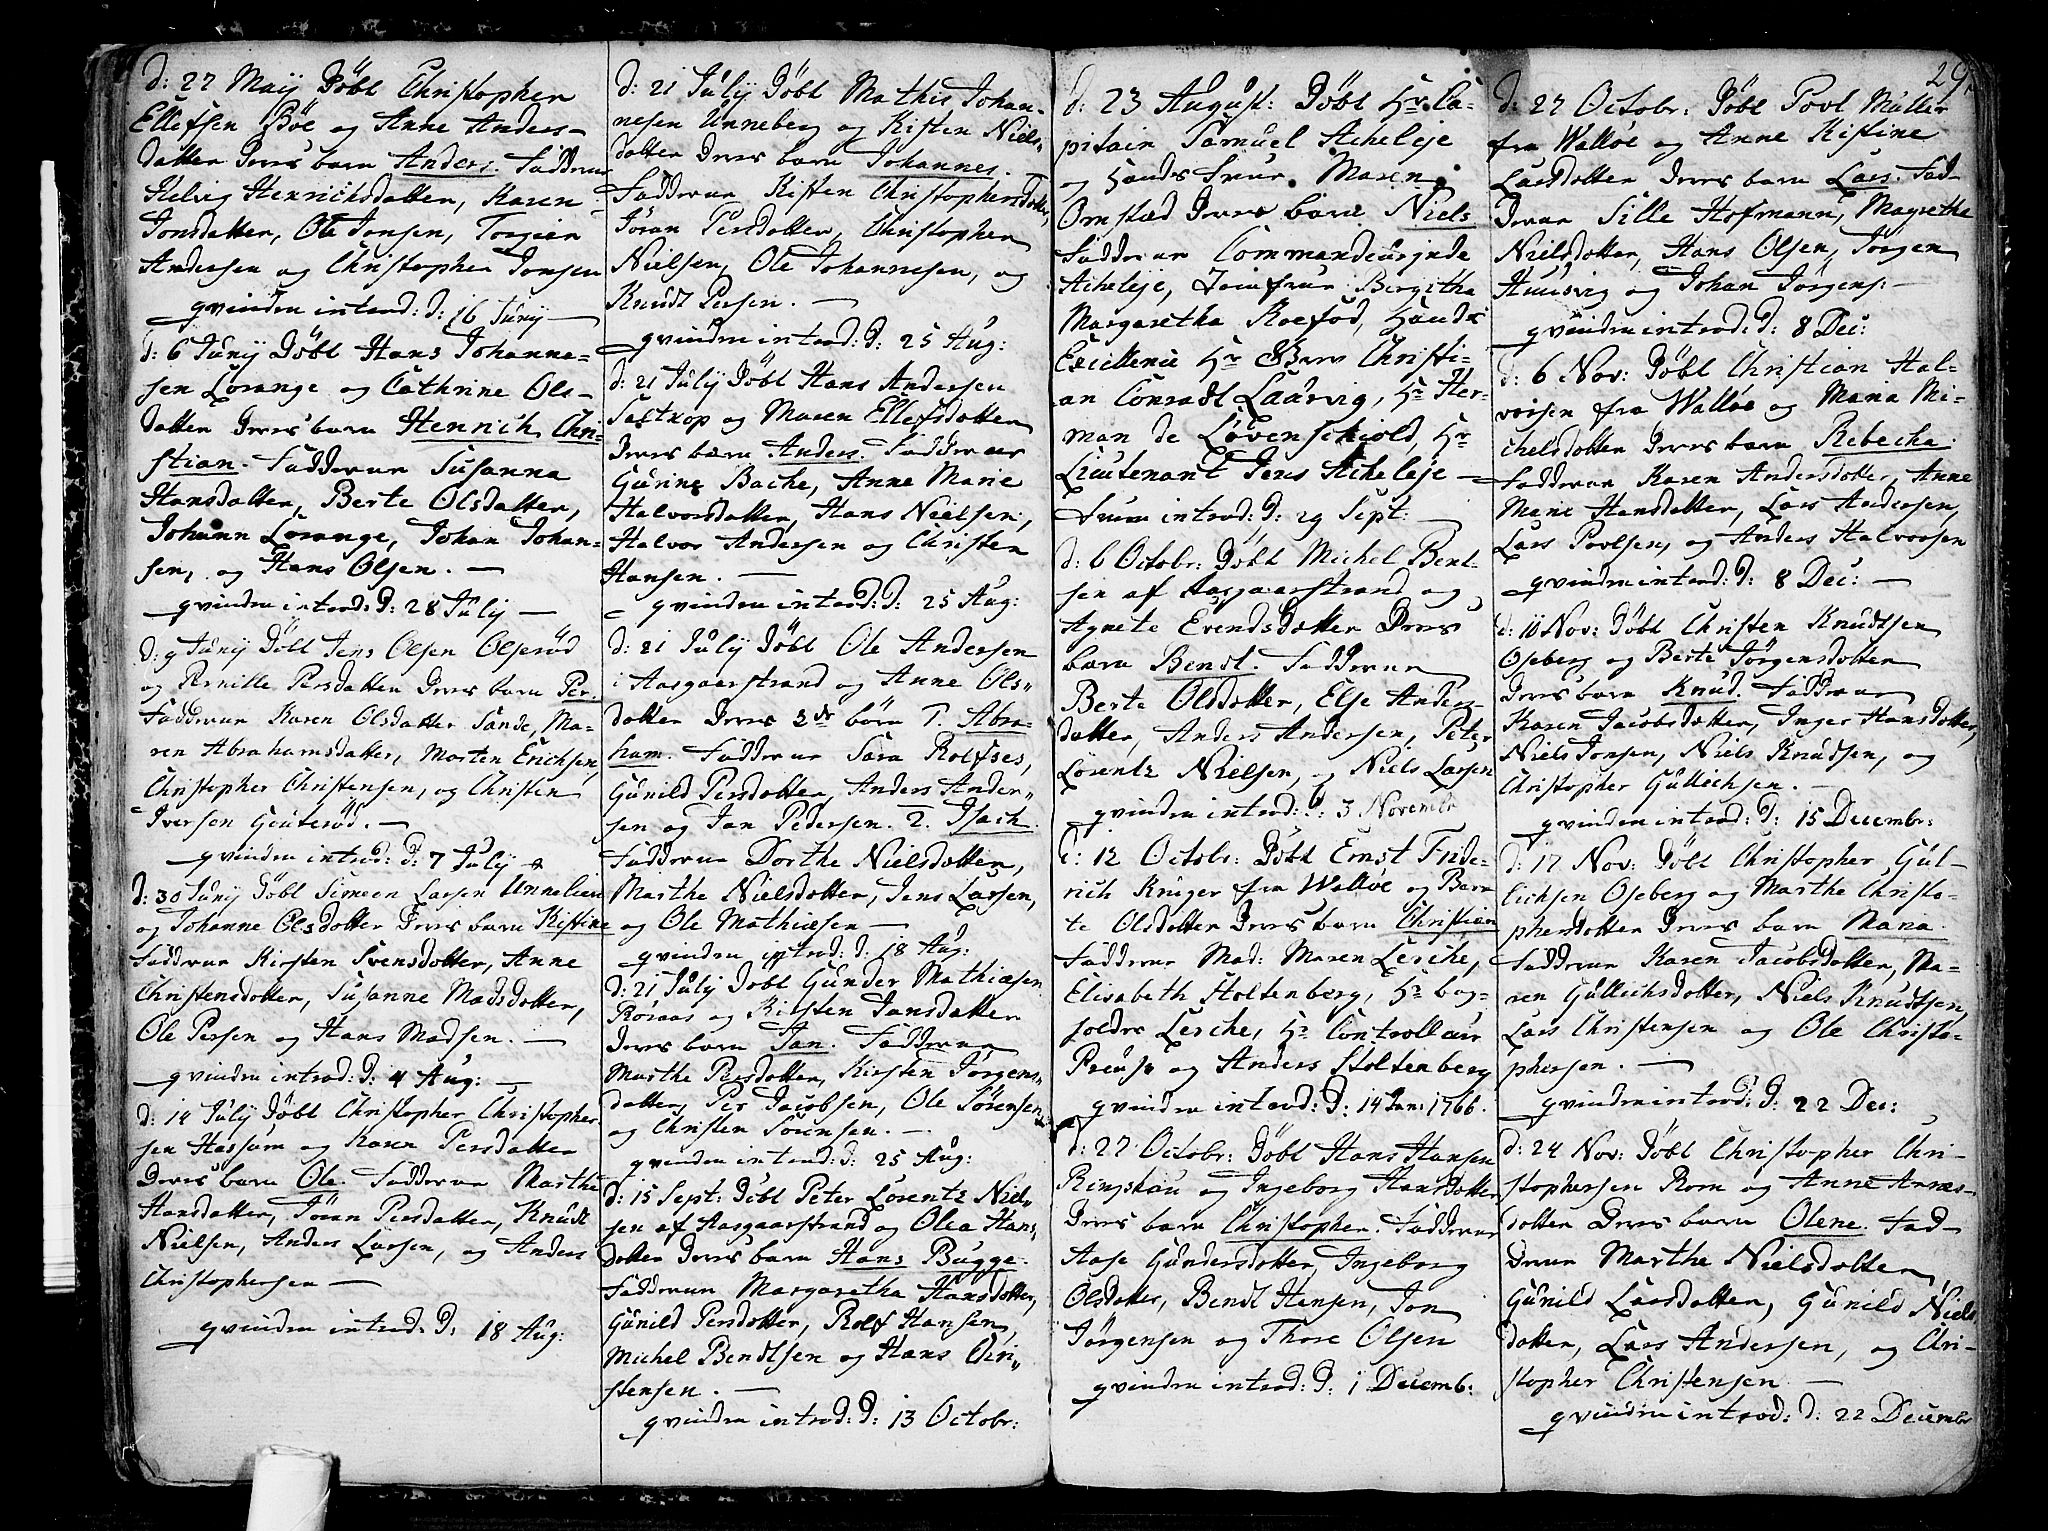 d: 27 Maij Döbt Christopher
Ellefsen Böe og Anne Anders-
datter Deres barn Anders. Fadderne
Helvig Henrichsdatter, Karen
Jonsdatter, Ole Jonsen, Torgier
Andersen og Christopher Jonsen
qvinden introd: d: 16 Junij —
d: 6 Junij Döbt Hans Johanne-
sen Lorange og Cathrine Ols-
datter Deres barn Henrich Chri-
stian. Fadderne Susanna
Hansdatter, Berte Olsdatter,
Johann Lorange, Johan Johan-
sen, og Hans Olsen. —
qvinden introd: d: 28 Julij —
d: 9 Junij Döbt Jens Olsen Olsröd
og Pernille Persdatter Deres barn Per.
Fadderne Karen Olsdatter Sande, Ma-
ren Abrahamsdatter, Morten Erichsen,
Christopher Christensen, og Christen
Iversen Gouteröd. —
qvinden introd: d: 7 Julij —
d: 30 Junij Döbt Simeen Larsen Unnelien
og Johanne Olsdotter Deres barn Kistine
Fadderne Kirsten Svensdotter, Anne
Christensdotter, Susanne Madsdotter,
Ole Persen og Hans Madsen. —
qvinden introd: d: 4 Aug: —
d: 14 Julij Döbt Christopher Christopher-
sen Hassum og Karen Persdatter
Deres barn Ole. Fadderne Marthe
Hansdatter, Jöran Persdatter, Knudt
Nielsen, Anders Larsen, og Anders
Christophersen —
qvinden introd: d: 18 Aug:
d: 21 Julij Döbt Mathis Johan-
nesen Unneberg og Kisten Niels-
datter Deres barn Johannes.
Fadderne Kisten Christophersdotter,
Jöran Persdotter, Christopher
Nielsen, Ole Johannesen, og
Knudt Persen. —
qvinden introd: d: 25 Aug:
d: 21 Julij Döbt Hans Andersen
Sastrop og Maren Ellefsdotter
Deres barn Anders. Fadderne
Gunne Bache, Anne Marie
Halvorsdatter, Hans Nielsen,
Halvor Andersen og Christen
Hansen. —
qvinden introd: d: 25 Aug:
d: 21 Julij Döbt Ole Andersen
i Aasgaarstrand og Anne Ols-
dotter Deres 2de börn 1. Abra-
ham. Fadderne Sara Rolfses,
Gunild Persdotter, Anders Ander-
sen og Jan Pedersen. 2. Isach.
Fadderne Dorthe Nielsdotter,
Marthe Nielsdotter, Jens Larsen,
og Ole Mathiesen —
qvinden introd: d: 18 Aug:
d: 21 Julij Döbt Gunder Mathiæsen
Röraas og Kirsten Jansdatter
Deres barn Jan. Fadderne
Marthe Persdotter, Kirsten Jörgens-
datter, Per Jacobsen, Ole Sörensen
og Christen Sörensen. —
qvinden introd: d: 25 Aug:
d: 15 Sept: Döbt Peter Lorentz Niel-
sen af Aasgaarstrand og Olea Hans
dotter Deres barn Hans Bugge.
Fadderne Margaretha Hansdotter,
Gunild Persdotter, Rolf Hansen,
Michel Bendtsen og Hans Chri-
stensen. —
qvinden introd: d: 13 Octobr:
29.
d: 23 August: Döbt Hr Ca-
pitain Samuel Acheleje
og Hands Frue Maren
Ornsted Deres barn Niels
Fadderne Commandeurinde
Acheleje, Jomfrue Bergitha
Margaretha Koefod, Hands
Excellence Hr Grev Christi-
an Conradt Laurvig, Hr Her-
man de Løvenschiold, Hr
Lieutenant Jens Acheleje —
Fruen introd: d: 29 Sept: —
d: 6 Octobr: Döbt Michel Bent-
sen af Aasgaarstrand og
Agnete Evendsdatter Deres
barn Bendt. Fadderne
Berte Olsdotter, Else Anders-
dotter, Anders Andersen, Peter
Lorentz Nielsen, og Niels Larsen
qvinden introd: d: 3 Novembr
d: 12 Octobr: Döbt Ernst Fride-
rich Krüger fra Walløe og Bere-
te Olsdotter Deres barn Christian
Fadderne Mad: Maren Lesche,
Elisabeth Stoltenberg, Hr bog-
holder Lesche, Hr Controlleur
Preuss og Anders Stoltenberg
qvinden introd: d: 14 Jan: 1766.
d: 27 Octobr: Döbt Hans Hansen
Ringshau og Ingeborg Hansdotter
Deres barn Christopher. Fadderne
Aase Gundersdotter, Ingeborg
Olsdotter, Bendt Hansen, Jon
Jörgensen og Thore Olsen
qvinden introd: d: 1 Decemb:
d: 27 Octobr: Döbt Povl Müller
fra Walløe og Anne Kistine
Larsdotter Deres barn Lars. Fad-
derne Sille Hofmann, Magretha
Nielsdotter, Hans Olsen, Jörgen
Huusvig og Johan Jörgens: —
qvinden introd: d: 8 Dec:
d: 6 Nov: Döbt Christian Hal-
vorsen fra Walløe og Maria Mi-
chelsdotter Deres barn Rebecha.
Fadderne Karen Andersdotter, Anne
Marie Hansdatter, Lars Andersen,
Lars Povlsen, og Anders Halvorsen
qvinden introd: d: 8 Dec: —
d: 10 Nov: Döbt Christen Knudtsen
Oseberg og Berte Jörgensdotter
Deres barn Knud. Fadderne
Karen Jacobsdotter, Inger Hansdotter,
Niels Jonsen, Niels Knudsen, og
Christopher Gullichsen. —
qvinden introd: d: 15 Decembr:
d: 17 Nov: Döbt Christopher Gul-
lichsen Oseberg og Marthe Christo-
phersdotter Deres barn Maria.
Fadderne Karen Jacobsdotter, Ma-
ren Gullichsdotter, Niels Knudtsen,
Lars Christensen og Ole Christo-
phersen. —
qvinden introd: d: 22 Dec:
d: 24 Nov: Döbt Christopher Chri-
stophersen Rom og Anne Arnes-
dotter Deres barn Olene. Fad-
derne Marthe Nielsdotter,
Gunild Larsdotter, Gunild Niels
dotter, Lars Andersen, og Chri-
stopher Christensen —
qvinden introd: d: 22 Decembr